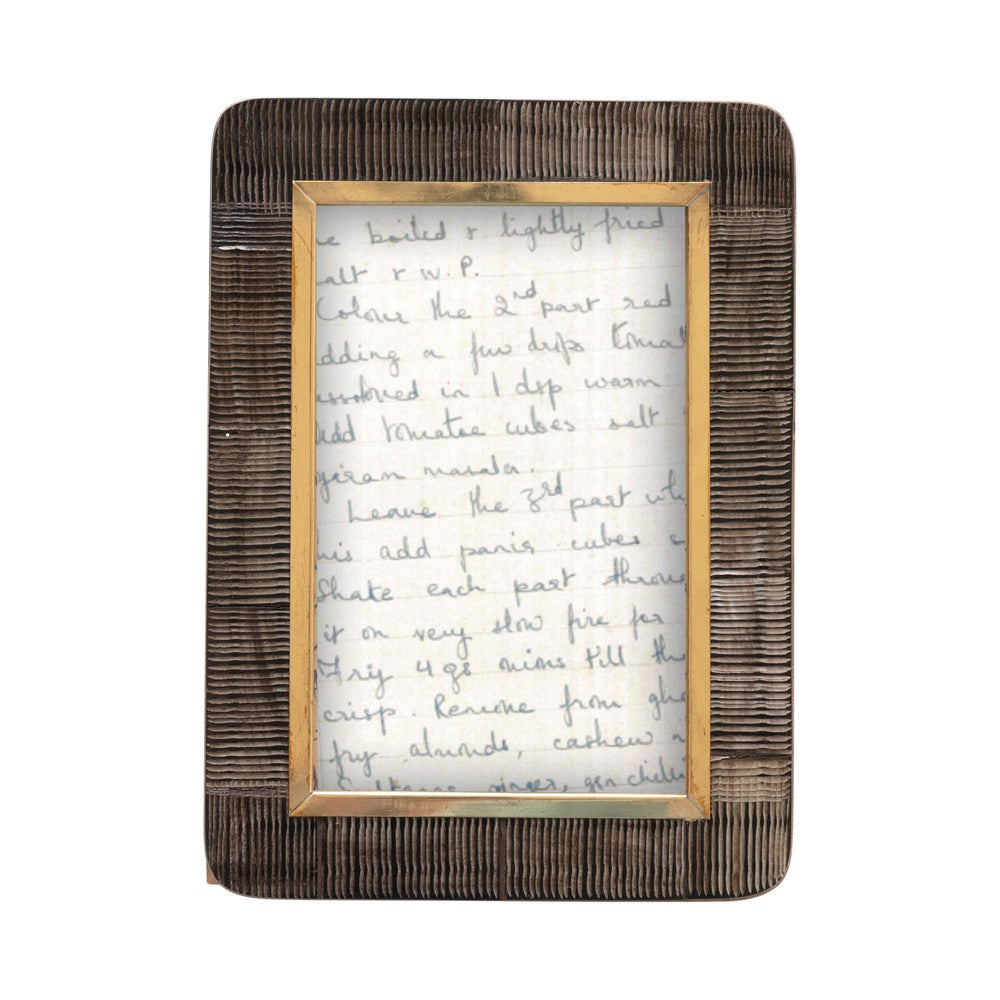 e boiled & lightly fried
alt & W.P.
Colour the 2nd part red
dding a few drops tomat
ssolved in 1 dsp warm
Add tomatoe cubes salt
garam masala.
Leave the 3rd part whi
his add panir cubes
Shake each part throu
it on very slow fire for
Fry 4 gs onions till the
crisp. Remove from ghe
fry almonds, cashew n
Sultanas ginger, gr. chilli